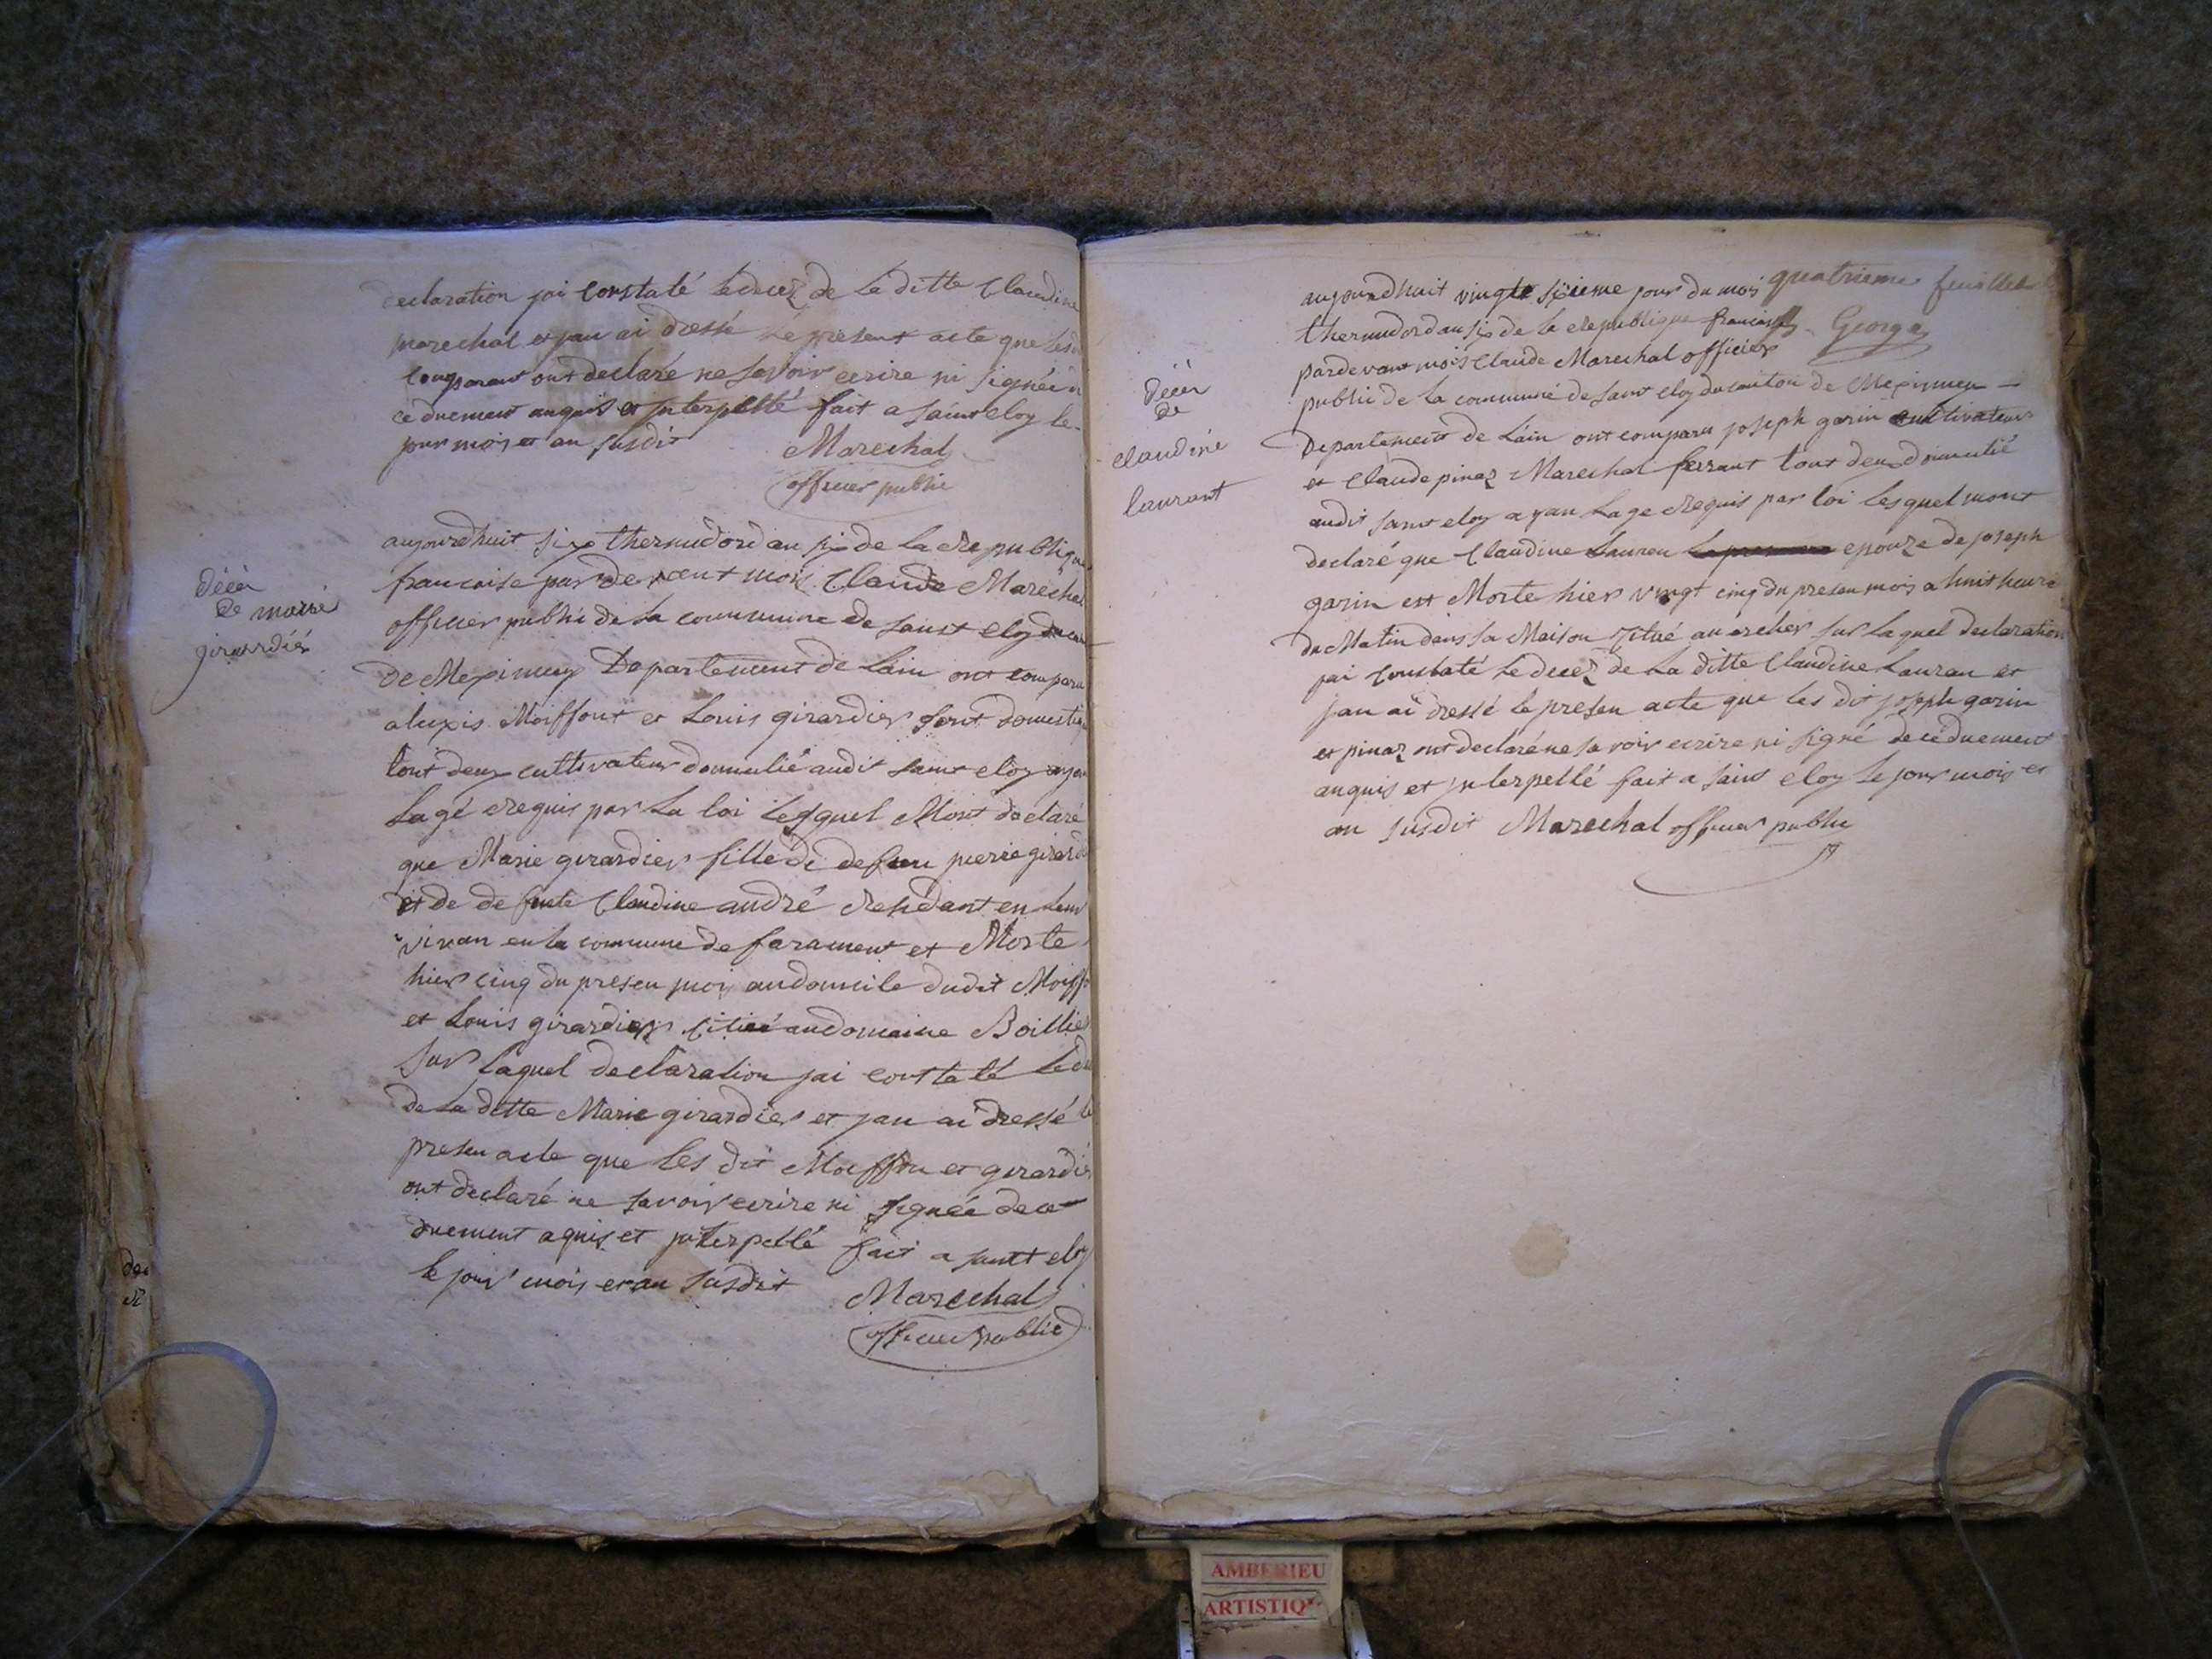 declaration jai constaté le decez de la ditte Claudine
marechal et jan ai dressé le present acte que les
comparant ont declaré ne savoir ecrire ni signée
ce duement anquis et interpellé fait a saint eloy le
jour mois et an susdit
Marechal
officier public
déces
de marie
girardiér
aujourdhuit six thermidord an six de la republique
francaise par de vant mois Claude Marechal
officier publié de la commune de saint eloy du can
de Meximieux Departement de Lain ont comparu
alexis Moiffont et Louis girardier sont domestiq
tout deux cultivateur domicilié audit saint eloy ayan
lagé requis par la loi lesquel Mont declaré
que Marie girardier fille de defeu pierre girard
et de de funte Claudine andré residant en leur
vivan en la commune de faramant et Morte
hier cinq du presen mois au domicile dudit Moiff
et Louis girardier situé au domaine Boillier
sur laquel declaration jai constaté le de
de la ditte Marie girardier et jan ai dressé le
presen acte que les dit Moiffon et girardier
ont declaré ne savoir ecrire ni signée de ce
duement aquis et interpellé fait a saint eloy
le jour mois et an susdit
Marechal
officier public
quatrieme feuillet
George
déces
de
claudine
laurant
aujourdhuit vingt sixieme jour du mois
thermidord an six de la republique francaise
pardevant mois Claude Marechal officier
public de la commune de saint eloy du canton de Meximieu
Departement de Lain ont comparu joseph garin cultivateur
et Claude pinaz Marechal ferrant tout deux domicilié
audit saint eloy ayan lage requis par loi lesquel mont
declaré que Claudine Lauran epouze de joseph
garin est Morte hier vingt cinq du presen mois a huit heure
du Matin dans sa Maison situé au archer sur laquel declaration
jai constaté le decez de la ditte Claudine Lauran et
jan ai dressé le presen acte que les dit joseph garin
et pinaz ont declaré ne savoir ecrire ni signé de ce duement
anquis et interpellé fait a saint eloy le jour mois et
an susdit Marechal officier public
AMBERIEU
ARTISTIQ